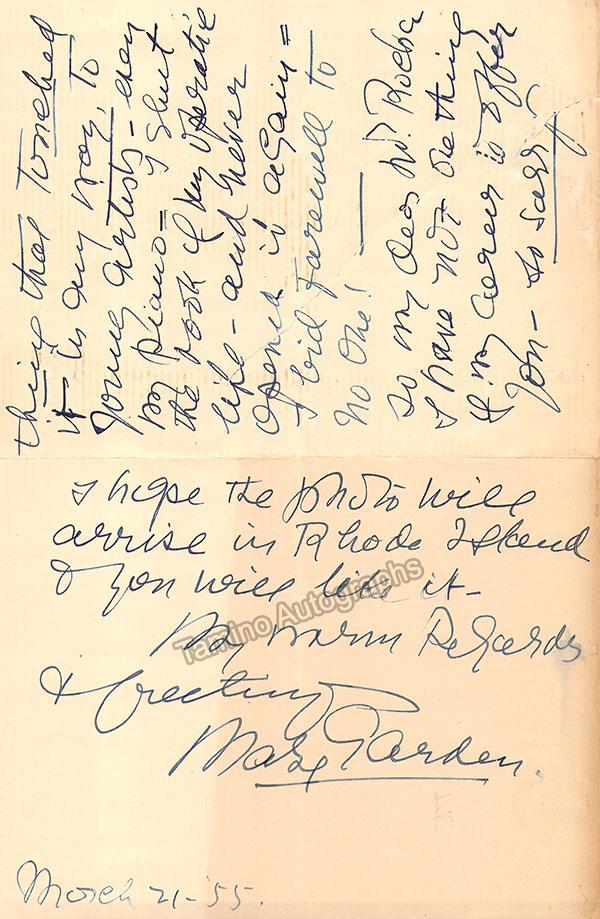 thing that touched
it - in any way, to
young artists - even
my piano = I shut
the book of my operatic
life - and never
opened it again =
I bid farewell to
no one! —
So my dear Mr.
I have not one thing
of my career to offer
you - so sorry
I hope the photo will
arrive in Rhode Island
& you will like it -
My warm Regards
& Greetings
Mary Garden.
March 21 - 55.
Tamino Autographs